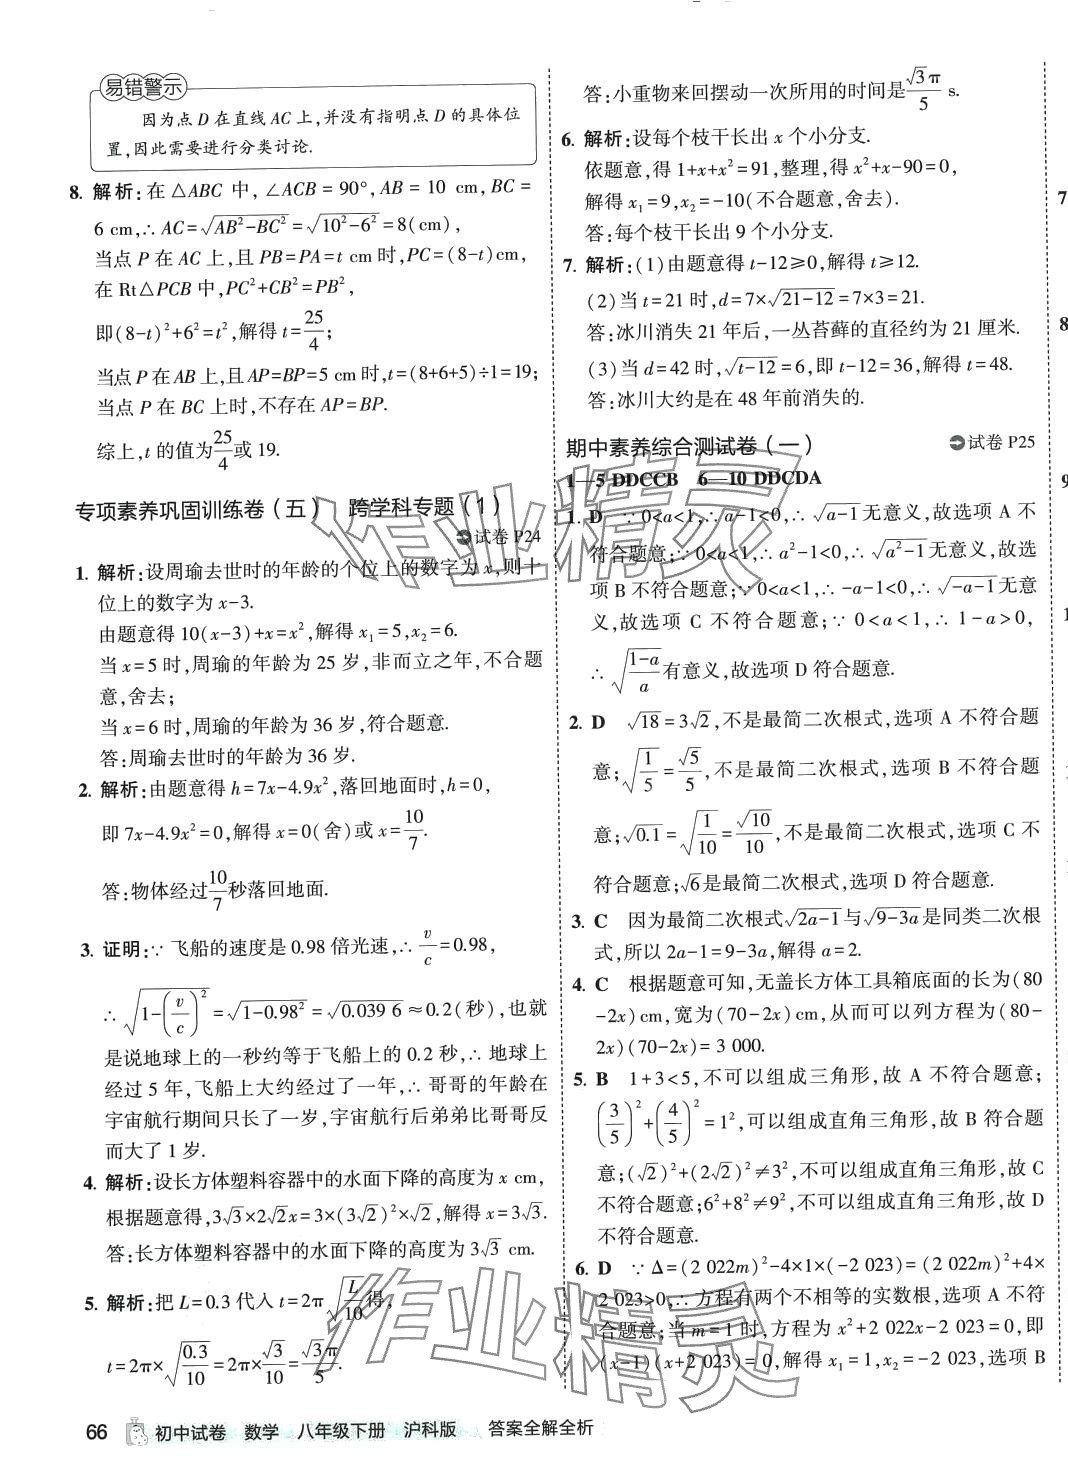 易错警示
因为点 D 在直线 AC 上,并没有指明点 D 的具体位
置,因此需要进行分类讨论.
8. 解析:在 △ABC 中, ∠ACB = 90°, AB = 10 cm, BC =
6 cm,∴ AC=√(AB²-BC²) =√(10²-6²) =8(cm),
当点 P 在 AC 上,且 PB=PA=t cm 时,PC=(8-t)cm,
在 Rt△PCB 中,PC²+CB²=PB²,
即(8-t)²+6²=t²,解得 t=25/4;
当点 P 在 AB 上,且 AP=BP=5 cm 时,t=(8+6+5)÷1=19;
当点 P 在 BC 上时,不存在 AP=BP.
综上,t 的值为25/4或 19.
专项素养巩固训练卷(五) 跨学科专题(1)
试卷 P24
1. 解析:设周瑜去世时的年龄的个位上的数字为 x,则十
位上的数字为 x-3.
由题意得 10(x-3)+x=x²,解得 x₁=5,x₂=6.
当 x=5 时,周瑜的年龄为 25 岁,非而立之年,不合题
意,舍去;
当 x=6 时,周瑜的年龄为 36 岁,符合题意.
答:周瑜去世时的年龄为 36 岁.
2. 解析:由题意得 h=7x-4.9x²,落回地面时,h=0,
即 7x-4.9x²=0,解得 x=0(舍)或 x=10/7.
答:物体经过10/7秒落回地面.
3. 证明:∵ 飞船的速度是 0.98 倍光速,∴ v/c=0.98,
∴ √(1-(v/c)²)=√(1-0.98²) =√(0.039 6) ≈0.2(秒),也就
是说地球上的一秒约等于飞船上的 0.2 秒,∴ 地球上
经过 5 年,飞船上大约经过了一年,∴ 哥哥的年龄在
宇宙航行期间只长了一岁,宇宙航行后弟弟比哥哥反
而大了 1 岁.
4. 解析:设长方体塑料容器中的水面下降的高度为 x cm,
根据题意得,3√3×2√2x=3×(3√2)²×√2,解得 x=3√3.
答:长方体塑料容器中的水面下降的高度为 3√3 cm.
5. 解析:把 L=0.3 代入 t=2π√(L/10)得,
t=2π×√(0.3/10)=2π×√3/10=√3π/5.
答:小重物来回摆动一次所用的时间是√3π/5 s.
6. 解析:设每个枝干长出 x 个小分支.
依题意,得 1+x+x²=91,整理,得 x²+x-90=0,
解得 x₁=9,x₂=-10(不合题意,舍去).
答:每个枝干长出 9 个小分支.
7. 解析:(1)由题意得 t-12≥0,解得 t≥12.
(2)当 t=21 时,d=7×√(21-12)=7×3=21.
答:冰川消失 21 年后,一丛苔藓的直径约为 21 厘米.
(3)当 d=42 时,√(t-12)=6,即 t-12=36,解得 t=48.
答:冰川大约是在 48 年前消失的.
期中素养综合测试卷(一)
试卷 P25
1—5 DDCCB 6—10 DDCDA
1. D ∵ 0<a<1,∴ a-1<0,∴ √(a-1)无意义,故选项 A 不
符合题意;∵ 0<a<1,∴ a²-1<0,∴ √(a²-1)无意义,故选
项 B 不符合题意;∵ 0<a<1,∴ -a-1<0,∴ √(-a-1)无意
义,故选项 C 不符合题意;∵ 0<a<1,∴ 1-a>0,
∴ √((1-a)/a)有意义,故选项 D 符合题意.
2. D √18=3√2,不是最简二次根式,选项 A 不符合题
意;√(1/5)=√5/5,不是最简二次根式,选项 B 不符合题
意;√0.1=√(1/10)=√10/10,不是最简二次根式,选项 C 不
符合题意;√6是最简二次根式,选项 D 符合题意.
3. C 因为最简二次根式√(2a-1)与√(9-3a)是同类二次根
式,所以 2a-1=9-3a,解得 a=2.
4. C 根据题意可知,无盖长方体工具箱底面的长为(80
-2x)cm,宽为(70-2x)cm,从而可以列方程为(80-
2x)(70-2x)=3 000.
5. B 1+3<5,不可以组成三角形,故 A 不符合题意;
(3/5)²+(4/5)²=1²,可以组成直角三角形,故 B 符合题
意;(√2)²+(2√2)²≠3²,不可以组成直角三角形,故 C
不符合题意;6²+8²≠9²,不可以组成直角三角形,故 D
不符合题意.
6. D ∵ Δ=(2 022m)²-4×1×(-2 023)=(2 022m)²+4×
2 023>0,∴ 方程有两个不相等的实数根,选项 A 不符
合题意;当 m=1 时,方程为 x²+2 022x-2 023=0,即
(x-1)(x+2 023)=0,解得 x₁=1,x₂=-2 023,选项 B
7
8
9
1
作业精灵
作业精灵
66 初中试卷 数学 八年级下册 沪科版 答案全解全析